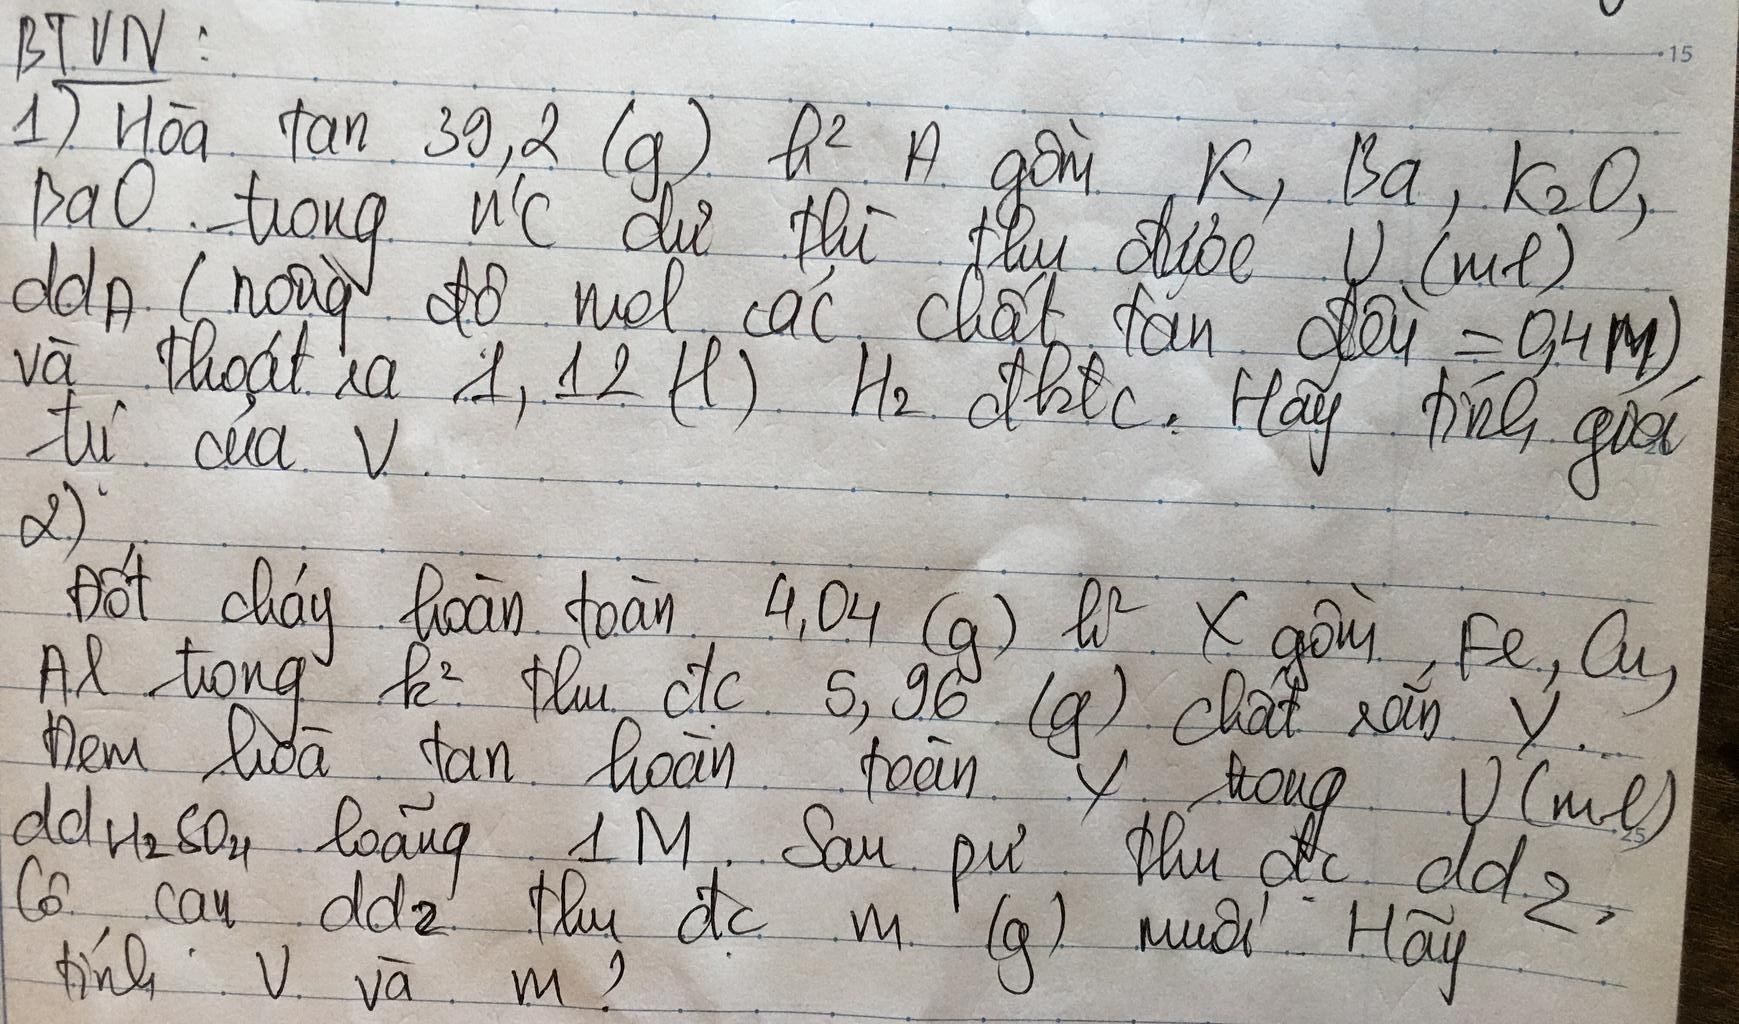 15
BTVN :
1) Hòa tan 39,2 (g) h² A gồm K, Ba, K₂O,
BaO trong nc dư thì thu được V (ml)
ddA (nồng độ mol các chất tan đều = 0,4M)
và thoát ra 1,12 (l) H₂ đktc. Hãy tính giá
trị của V
2)
Đốt cháy hoàn toàn 4,04 (g) h² X gồm Fe, Cu,
Al trong k² thu đc 5,96 (g) chất rắn Y.
Đem hoà tan hoàn toàn Y trong V (ml)
ddH₂SO₄ loãng 1M. Sau pư thu đc dd Z,
Cô cạn ddZ thu đc m (g) muối Hãy
tính V và m?